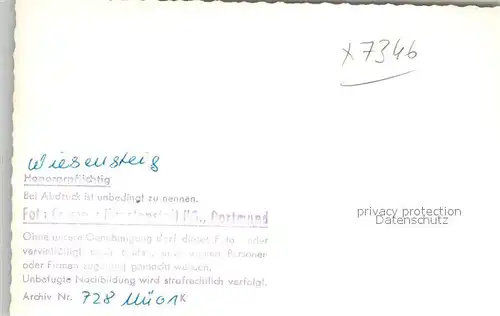 x7346
Wiesensteig
Honorarpflichtig
Bei Abdruck ist unbedingt zu nennen.
Fot: Cramers Kunstanstalt KG., Dortmund
privacy protection
Datenschutz
Ohne unsere Genehmigung darf dieses Foto weder
vervielfältigt noch dritten
oder Firmen zugängig gemacht werden.
Unbefugte Nachbildung wird strafrechtlich verfolgt.
Archiv Nr. 728